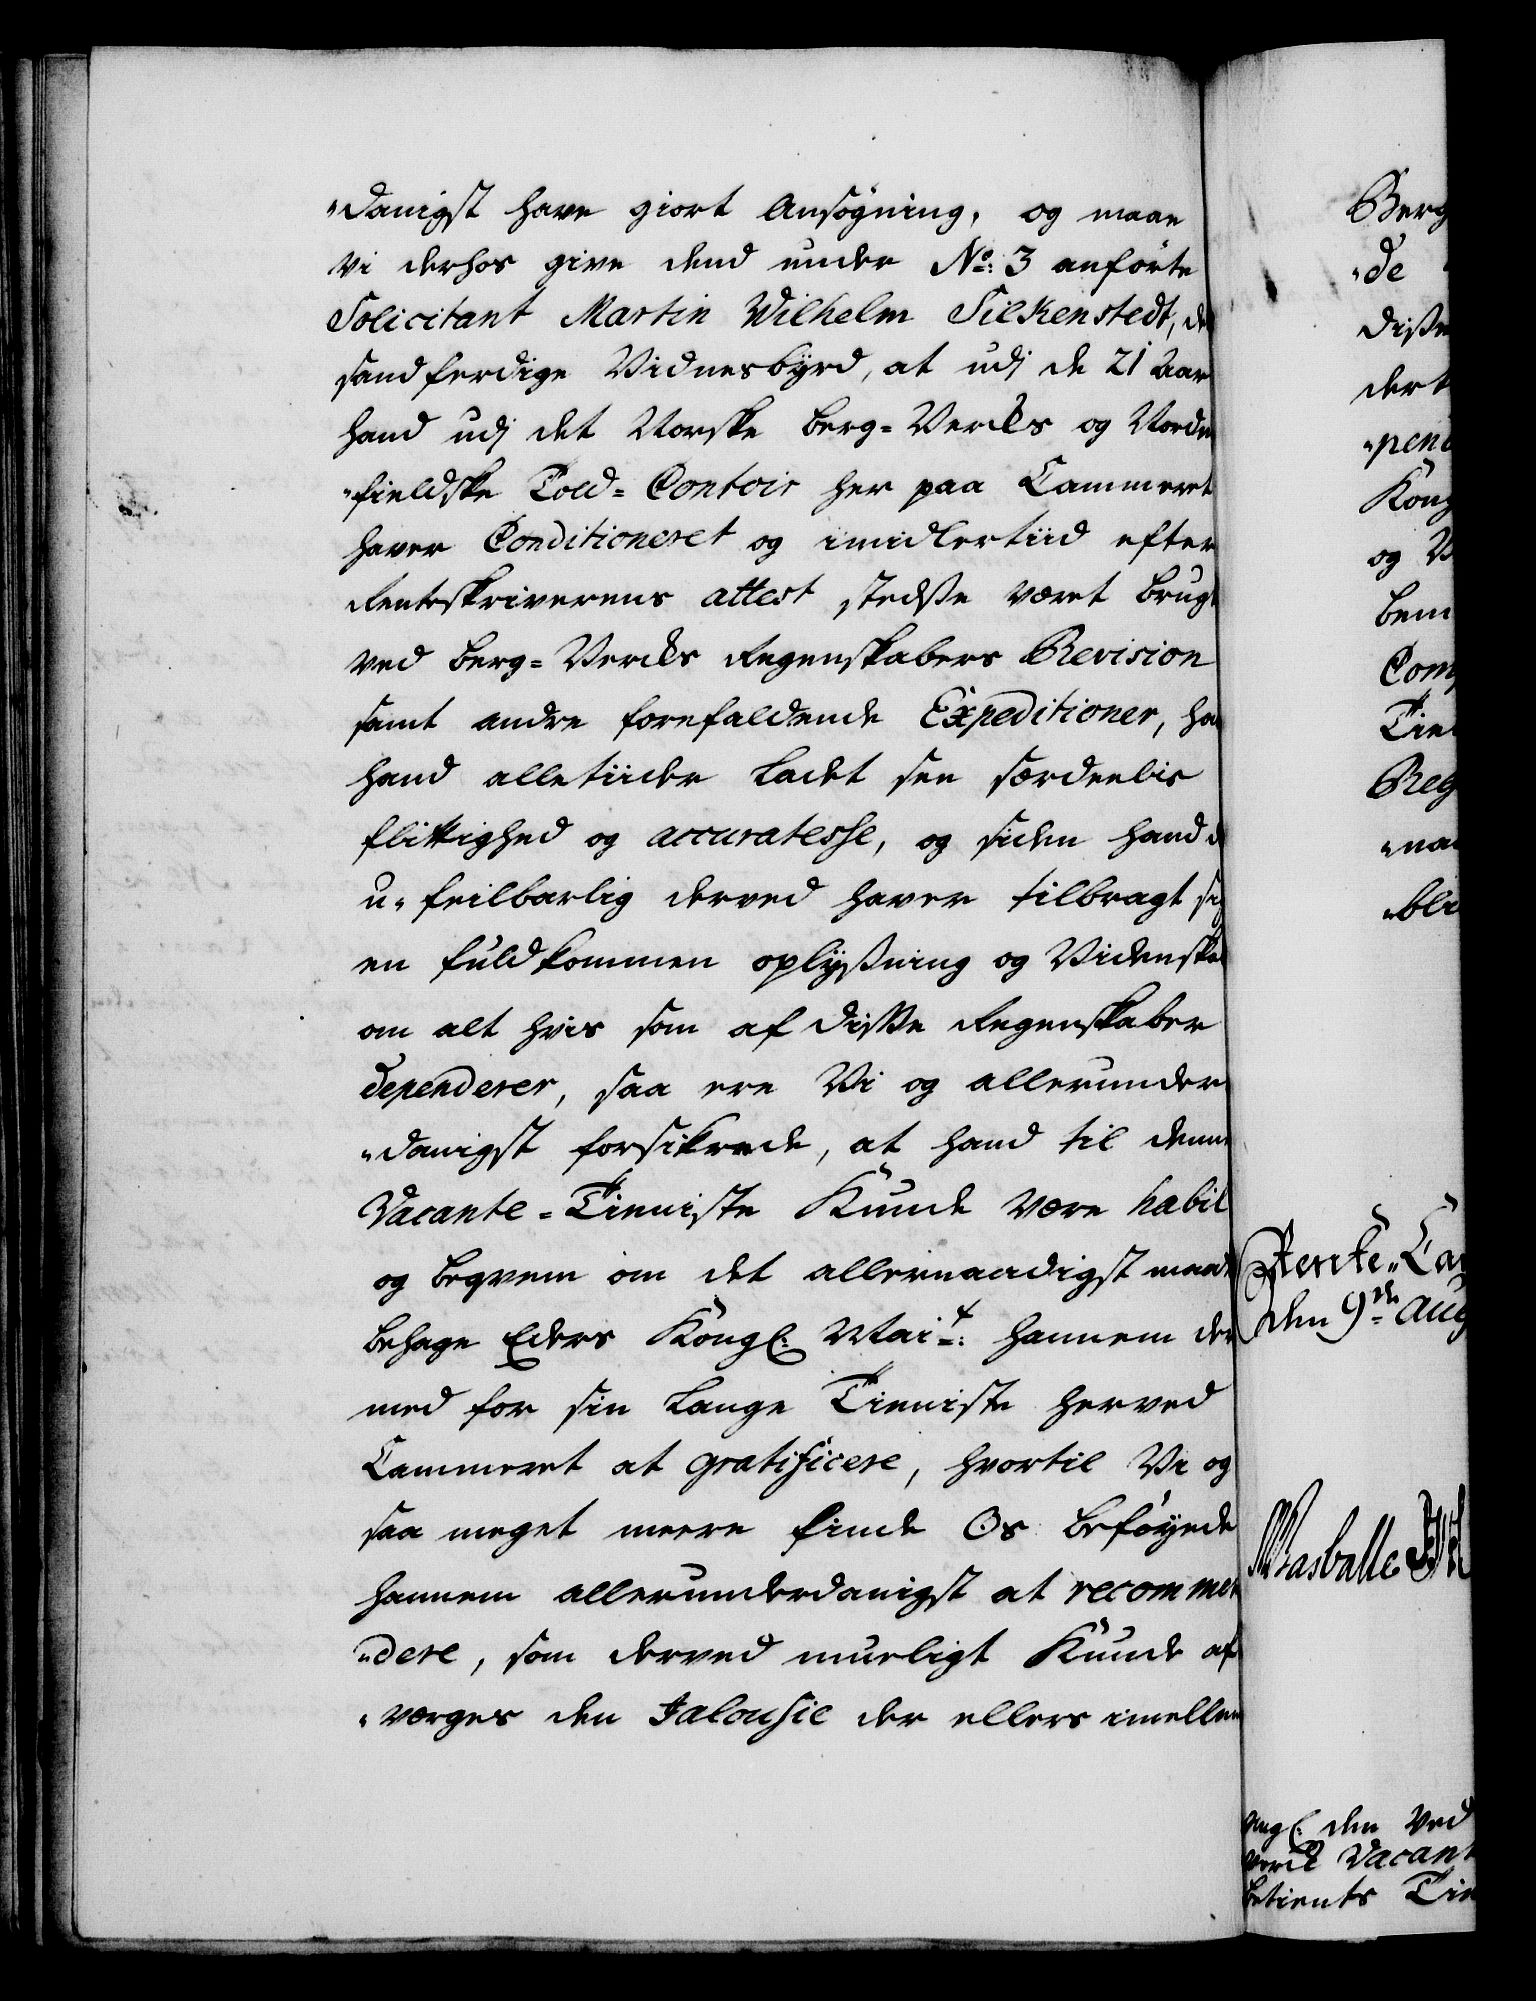 „danigst have giort Ansøgning, og maae
vi derhos give dend under No: 3 anførte
Solicitant Martin Wilhelm Silkenstedt, de
sandferdige Vidnesbyrd, at udj de 21 Aar
hand udj det Norske Berg=Vercks og Norden
„fieldske Told=Contoir her paa Cammeret
haver Conditioneret og imidlertiid efter
Renteskriverens attest stedsse været brugt
ved Berg=Vercks Regenskabers Revision
samt andre forefaldende Expeditioner, ha
hand alletiider ladet see særdeelis
flittighed og accuratesse, og siden hand
u„feilbarlig derved haver tilbragt sig
en fuldkommen oplyssning og Videnskab
om alt hvis som af disse Regenskaber
dependerer, saa ere Vi og allerunder
„danigst forsikrede, at hand til denne
Vacante=Tienniste kunde være habil
og beqvem om det allernaadigst maat
behage Eders Kongl: Mait: hannem der
med for sin lange Tienniste herved
Cammeret at gratificere, hvortil Vi og
saa meget meere finde Os beføyede
hannem allerunderdanigst at recommen
„dere, som derved mueligt kunde af
„værges den Jalousie der ellers imellem
Berg
„de
disse
dert
„pend
Kong
og V
bem
Com
Tien
Reg
„na
„bli
Rente„Cam
den 9de Aug
Rasballe
angl: den ved
verck Vacant
betients Tien